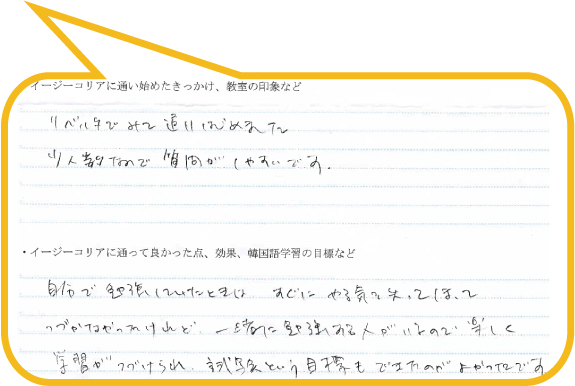 イージーコリアに通い始めたきっかけ、教室の印象など
みて通いはじめました
少人数なので質問がしやすいです。
・イージーコリアに通って良かった点、効果、韓国語学習の目標など
自分で勉強していたときは、すぐにやる気を失ってしまって
つづかなかったけれど、一緒に勉強する人がいるので楽しく
学習がつづけられ、試験という目標もできたのがよかったです